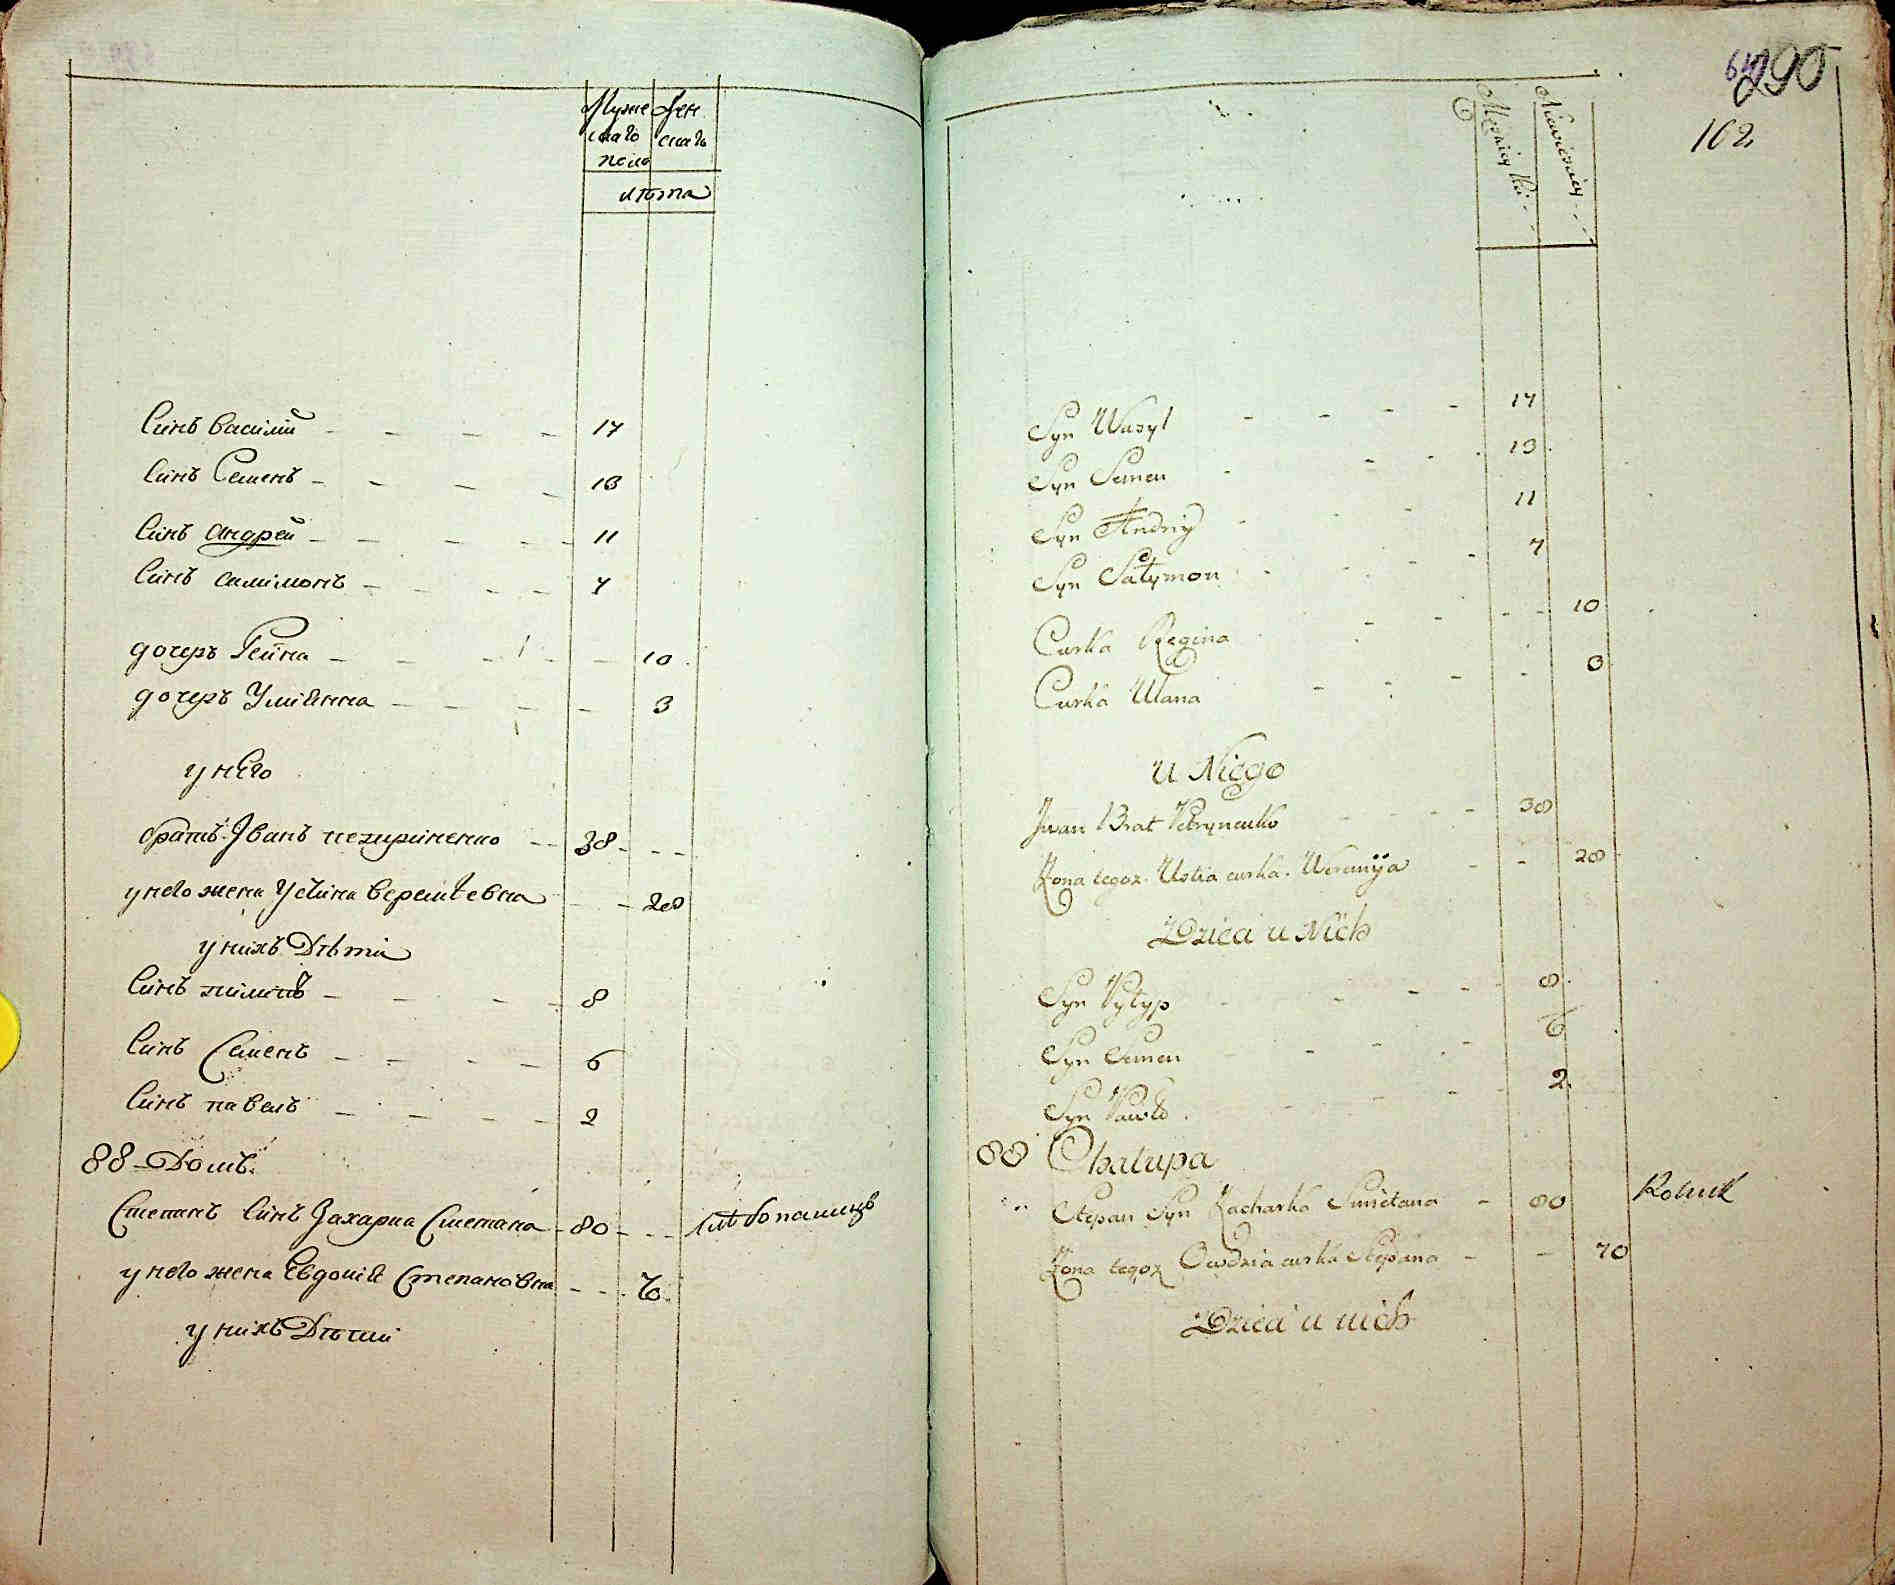 Муже Жен
скаго скаго
пола
лѣта
Синъ василий 17
Синъ Семенъ 13
Синъ андрей 11
Синъ салимонъ 7
дочеръ Регина 10
дочеръ Улиянна 3
у него
братъ Іванъ 38
у него жена Устина веремѣевна 28
у нихъ Дѣти
Синъ пилипъ 8
Синъ Семенъ 6
Синъ павелъ 2
88 Домъ
Степанъ Синъ Захариа Сметана 80 хлѣбопашецъ
у него жена Евдокия Степановна 70
у нихъ Дѣти
290
162
Męzkiey Niewieściey
Syn Wasyl 17
Syn Semen 13
Syn Andriy 11
Syn Sałymon 7
Curka Regina 10
Curka Ulana 3
u Niego
Jwan Brat Petrynenko 38
Zona tegoz Ustia curka Weremija 28
Dzieci u Nich
Syn Pyłyp 8
Syn Semen 6
Syn Pawło 2
88 Chałupa
Stepan Syn Zacharka Smietana 80 Rolnik
Zona tegoz Owdzia curka Stepana 70
Dzieci u nich